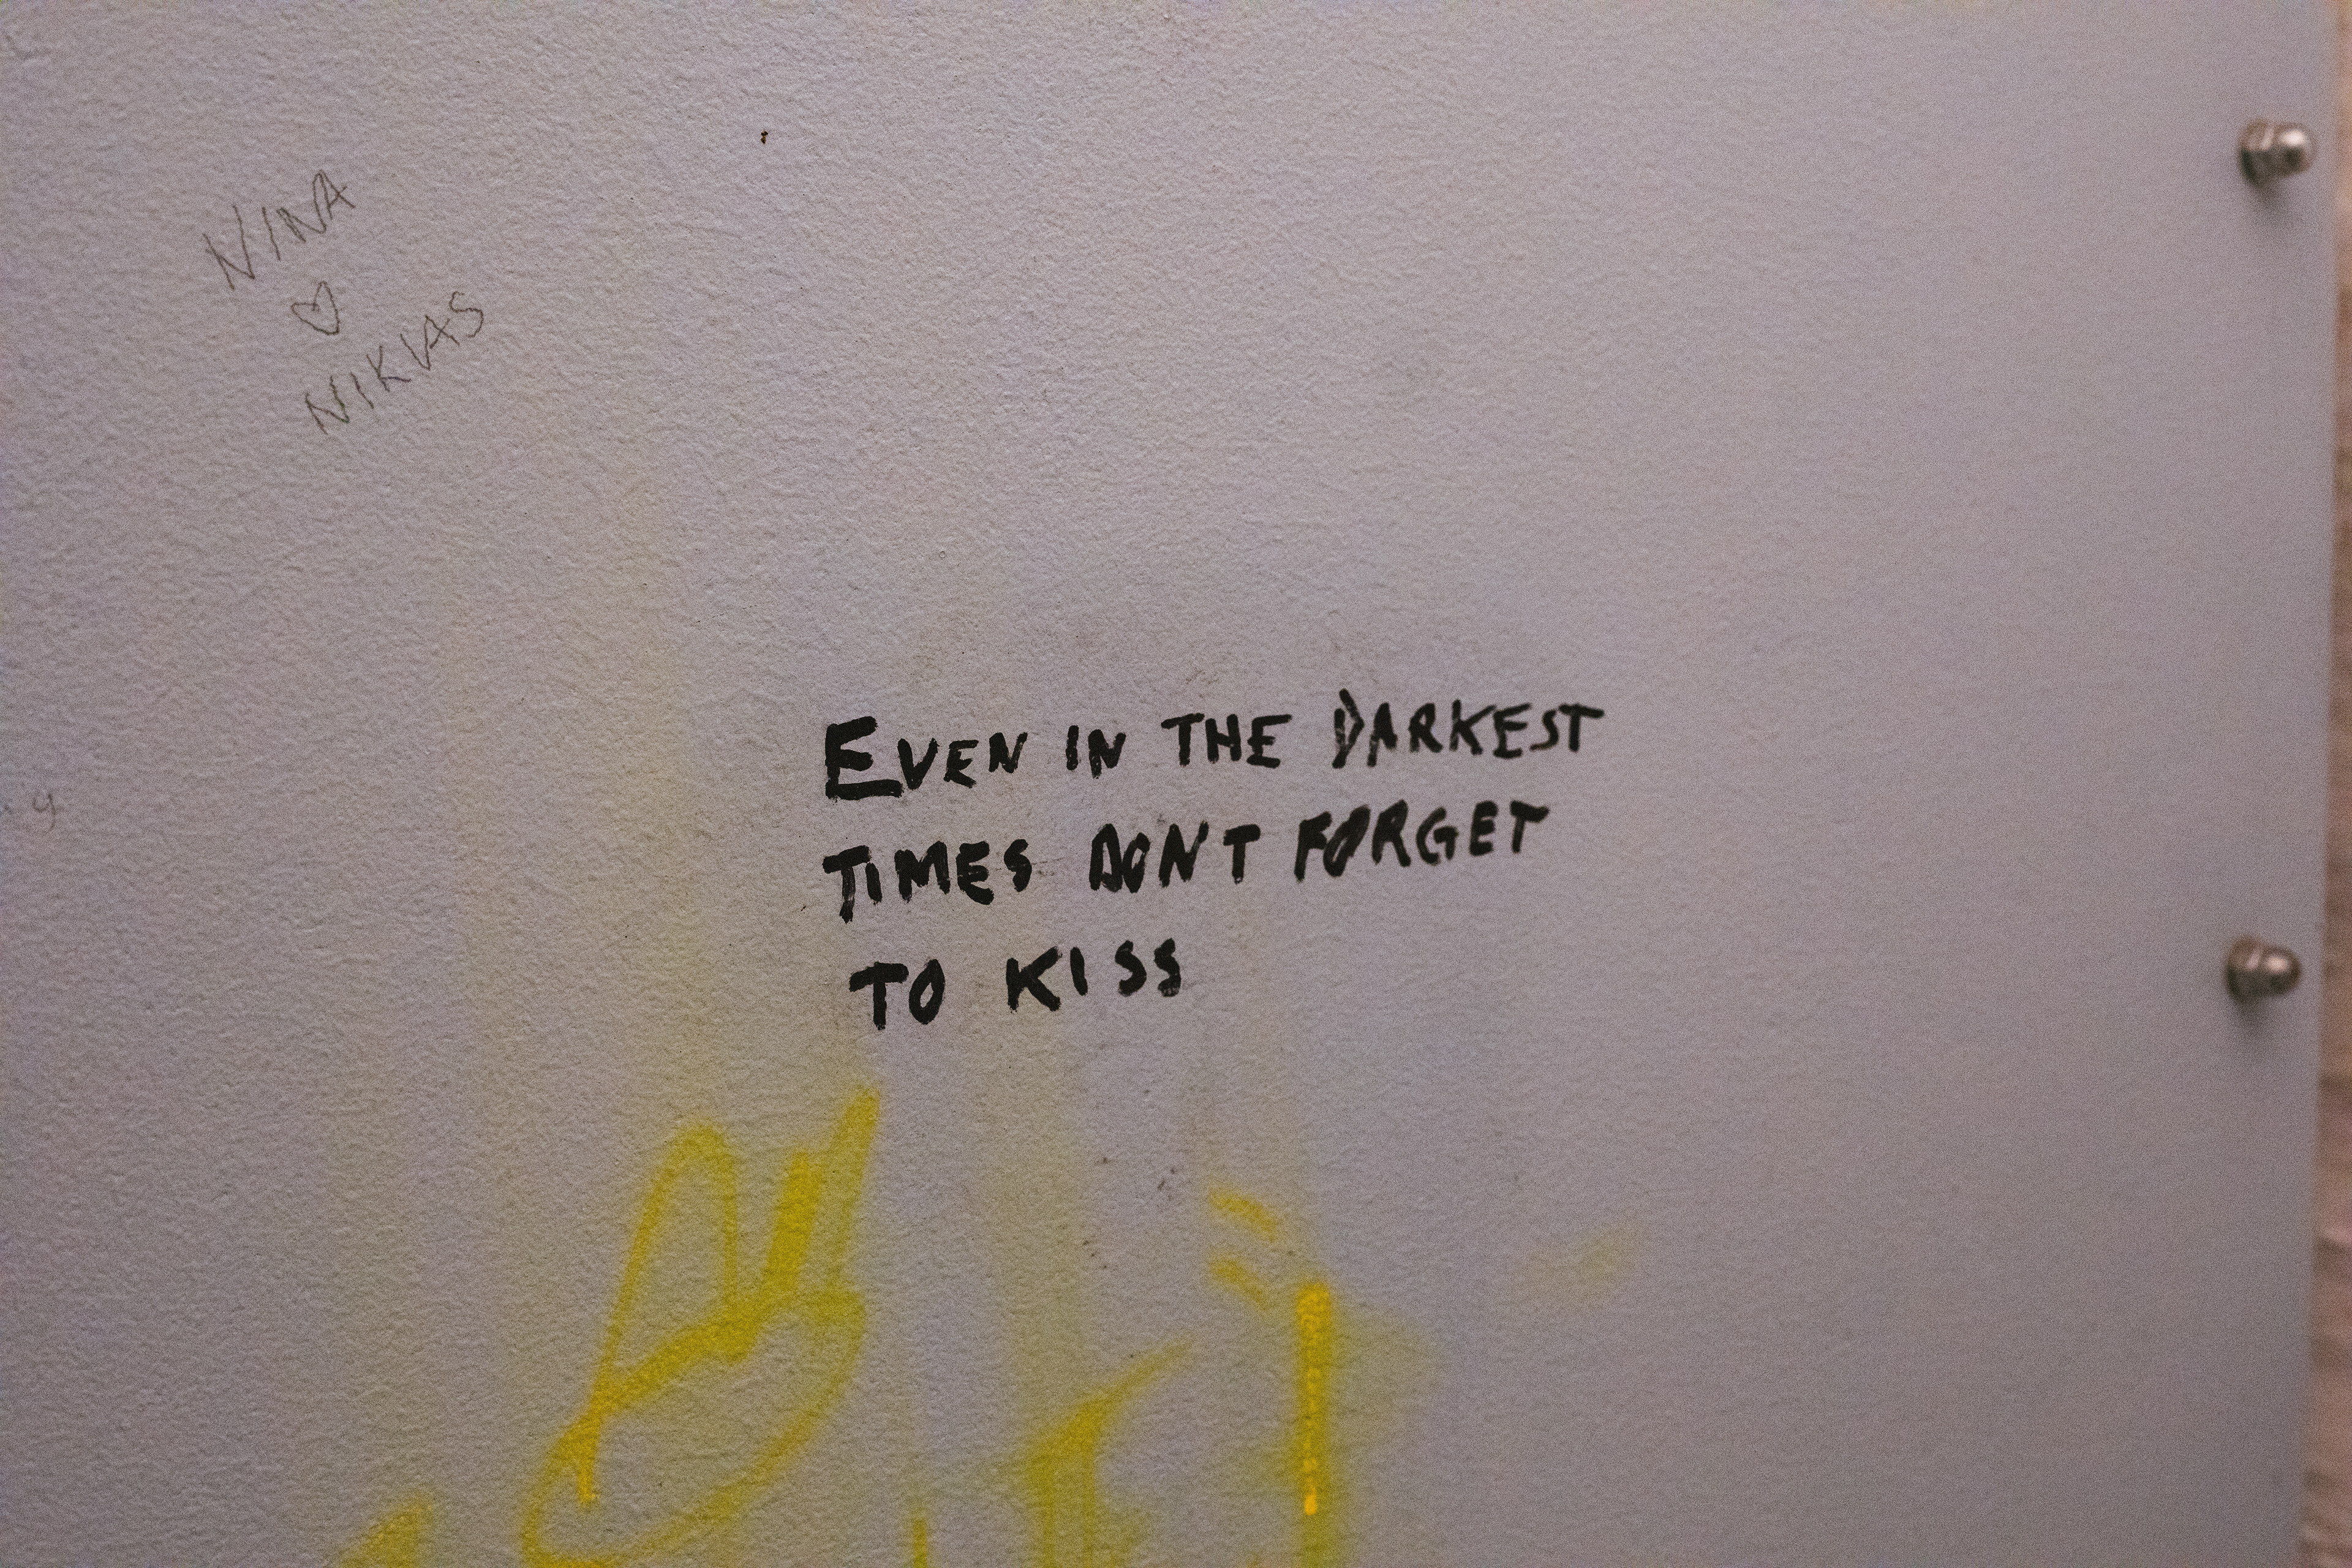 NINA
♡
NIKIAS
EVEN IN THE DARKEST
TIMES DON'T FORGET
TO KISS